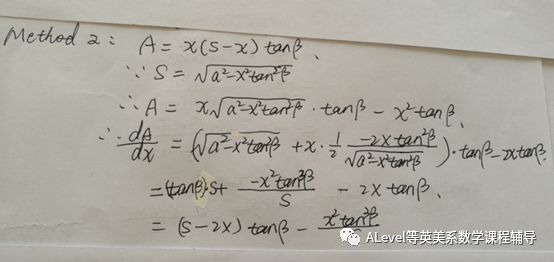 Method 2: A = x(s-x) tanβ.
∵ S = √(a²-x²tan²β)
∴ A = x√(a²-x²tan²β) · tanβ - x²tanβ.
∴ dA/dx = (√(a²-x²tan²β) + x · 1/2 (-2x tan²β)/√(a²-x²tan²β)) · tanβ - 2x tanβ.
= (tanβ)·S + (-x²tan³β)/S - 2x tanβ.
= (s-2x) tanβ - x²tan³β
ALevel等英美系数学课程辅导